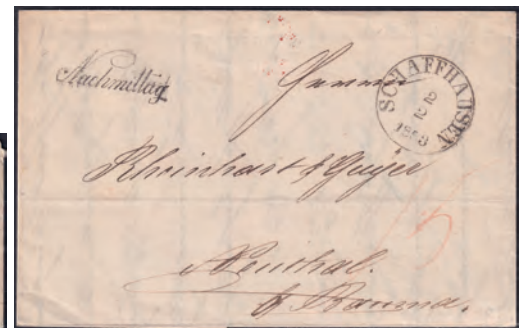 Nachmittag
Herren
SCHAFFHAUSEN
Rheinhart & Guyer
Neuthal.
b/ Bauma.